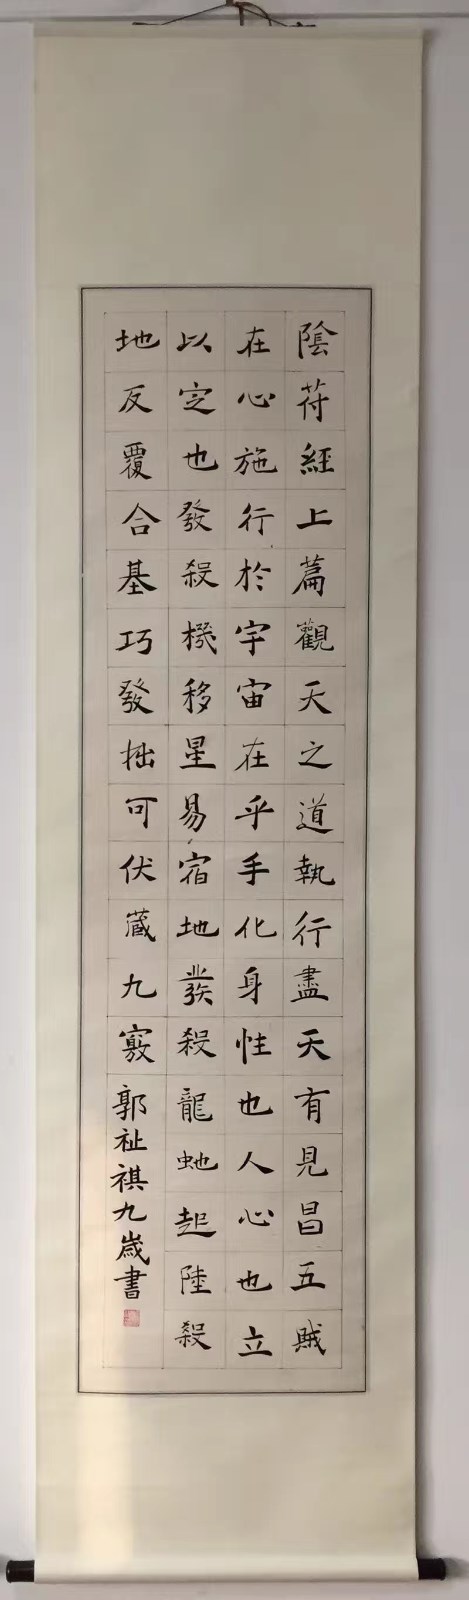 陰符經上篇觀天之道執行盡天有見昌五賊
在心施行於宇宙在乎手化身性也人心也立
以定也發殺機移星易宿地發殺龍虵起陸殺
地反覆合基巧發拙可伏藏九竅
郭祉祺九歲書